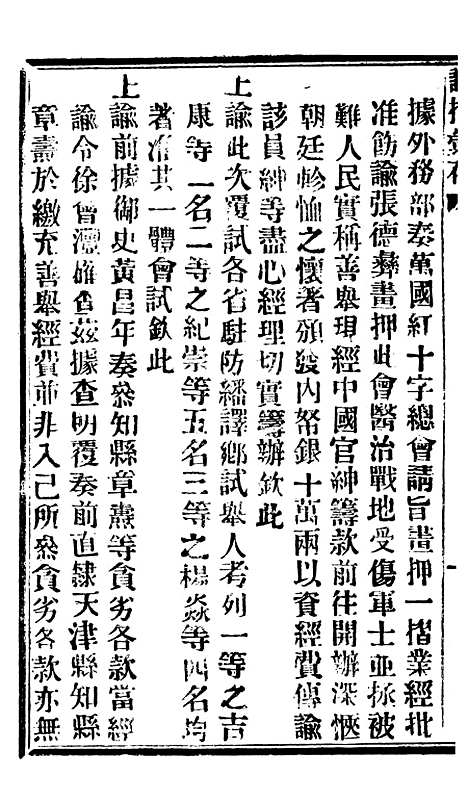 據外務部奏萬國紅十字總會請旨畫押一摺業經批
准飭諭張德彝畫押此會醫治戰地受傷軍士並拯被
難人民實稱善舉現經中國官紳籌款前往開辦深愜
朝廷軫恤之懷著頒發內帑銀十萬兩以資經費傳諭
該員紳等盡心經理切實籌辦欽此
上諭此次覆試各省駐防繙譯鄉試舉人考列一等之吉
康等一名二等之紀崇等五名三等之楊焱等四名均
著准其一體會試欽此
上諭前據御史黃昌年奏叅知縣章燾等貪劣各款當經
諭令徐會灃確查茲據查明覆奏前直隸天津縣知縣
章燾於繳充善舉經費並非入己所叅貪劣各款亦無